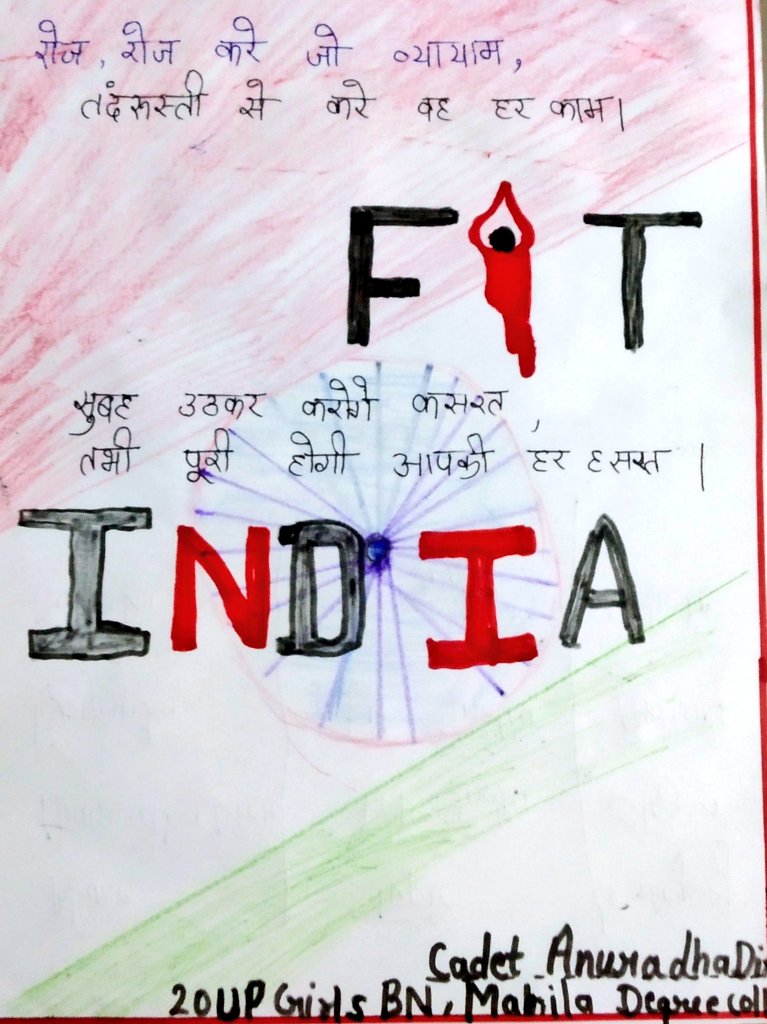 रोज, रोज करे जो व्यायाम,
तदंरुस्ती से करे वह हर काम।
FIT
सुबह उठकर करोगे कसरत,
तभी पूरी होगी आपकी हर हसरत।
INDIA
Cadet Anuradha
20 UP Girls BN, Mahila Degree